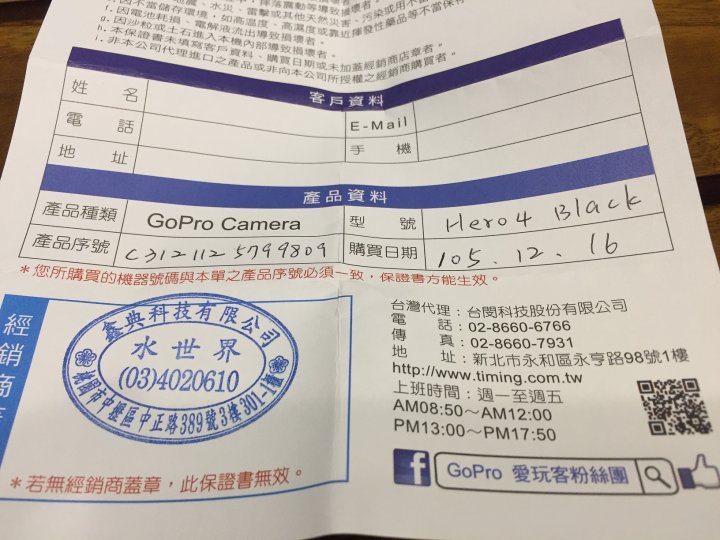 e. 因不當儲存環境，如高溫度、高濕度或靠近揮發性藥品等不當保存
f. 因電池耗損、電解液流出導致損害者。
g. 因沙粒或土石進入本機內部導致損害者。
h. 本保證書未填寫客戶資料、購買日期或未加蓋經銷商店章者。
i. 非本公司代理進口之產品或非向本公司所授權之經銷商購買者。
客戶資料
姓 名
電 話 E-Mail
地 址 手 機
產品資料
產品種類 GoPro Camera 型 號 Hero4 Black
產品序號 C3121125799809 購買日期 105.12.16
*您所購買的機器號碼與本單之產品序號必須一致，保證書方能生效。
經銷商
鑫典科技有限公司
水世界
(03)4020610
桃園市中壢區中正路389號3樓301-1櫃
*若無經銷商蓋章，此保證書無效。
台灣代理：台閔科技股份有限公司
電 話：02-8660-6766
傳 真：02-8660-7931
地 址：新北市永和區永亨路98號1樓
http://www.timing.com.tw
上班時間：週一至週五
AM08:50～AM12:00
PM13:00～PM17:50
f GoPro 愛玩客粉絲團